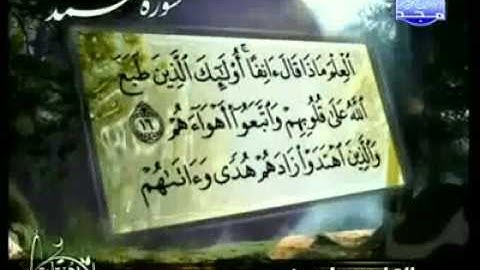 سورة محمد
مجد
ٱلۡعِلۡمَ مَاذَا قَالَ ءَانِفًاۚ أُوْلَٰٓئِكَ ٱلَّذِينَ طَبَعَ
ٱللَّهُ عَلَىٰ قُلُوبِهِمۡ وَٱتَّبَعُوٓاْ أَهۡوَآءَهُمۡ ١٦
وَٱلَّذِينَ ٱهۡتَدَوۡاْ زَادَهُمۡ هُدٗى وَءَاتَىٰهُمۡ